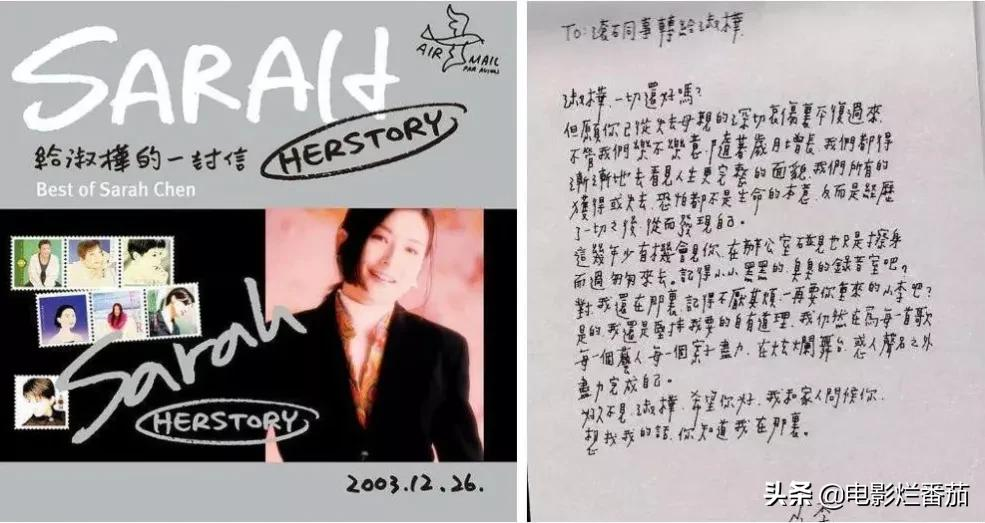 SARAH
AIR MAIL
PAR AVION
給淑樺的一封信
HERSTORY
Best of Sarah Chen
Sarah
HERSTORY
2003.12.26.
To:滾石同事轉給淑樺
淑樺,一切還好嗎?
但願你已從失去母親的深切哀傷裏平復過來
不管我們樂不樂意,隨著歲月增長,我們都得
漸漸地去看見人生更完整的面貌,我們所有的
獲得或失去,恐怕都不是生命的本意,反而是經歷
了一切之後,從而發現自己。
這幾年少有機會見你,在辦公室碰見也只是擦身
而過匆匆來去。記得小小黑黑的臭臭的錄音室吧?
對,我還在那裏,記得不厭其煩一再要你重來的小李吧?
是的,我還是堅持我要的自有道理,我仍然在為每一首歌
每一個藝人,每一個案子盡力,在燦爛舞台,惑人聲名之外
盡力完成自己。
好久不見,淑樺,希望你好,我和家人問候你,
想找我的話,你知道我在那裏。
小李
头条@电影烂番茄